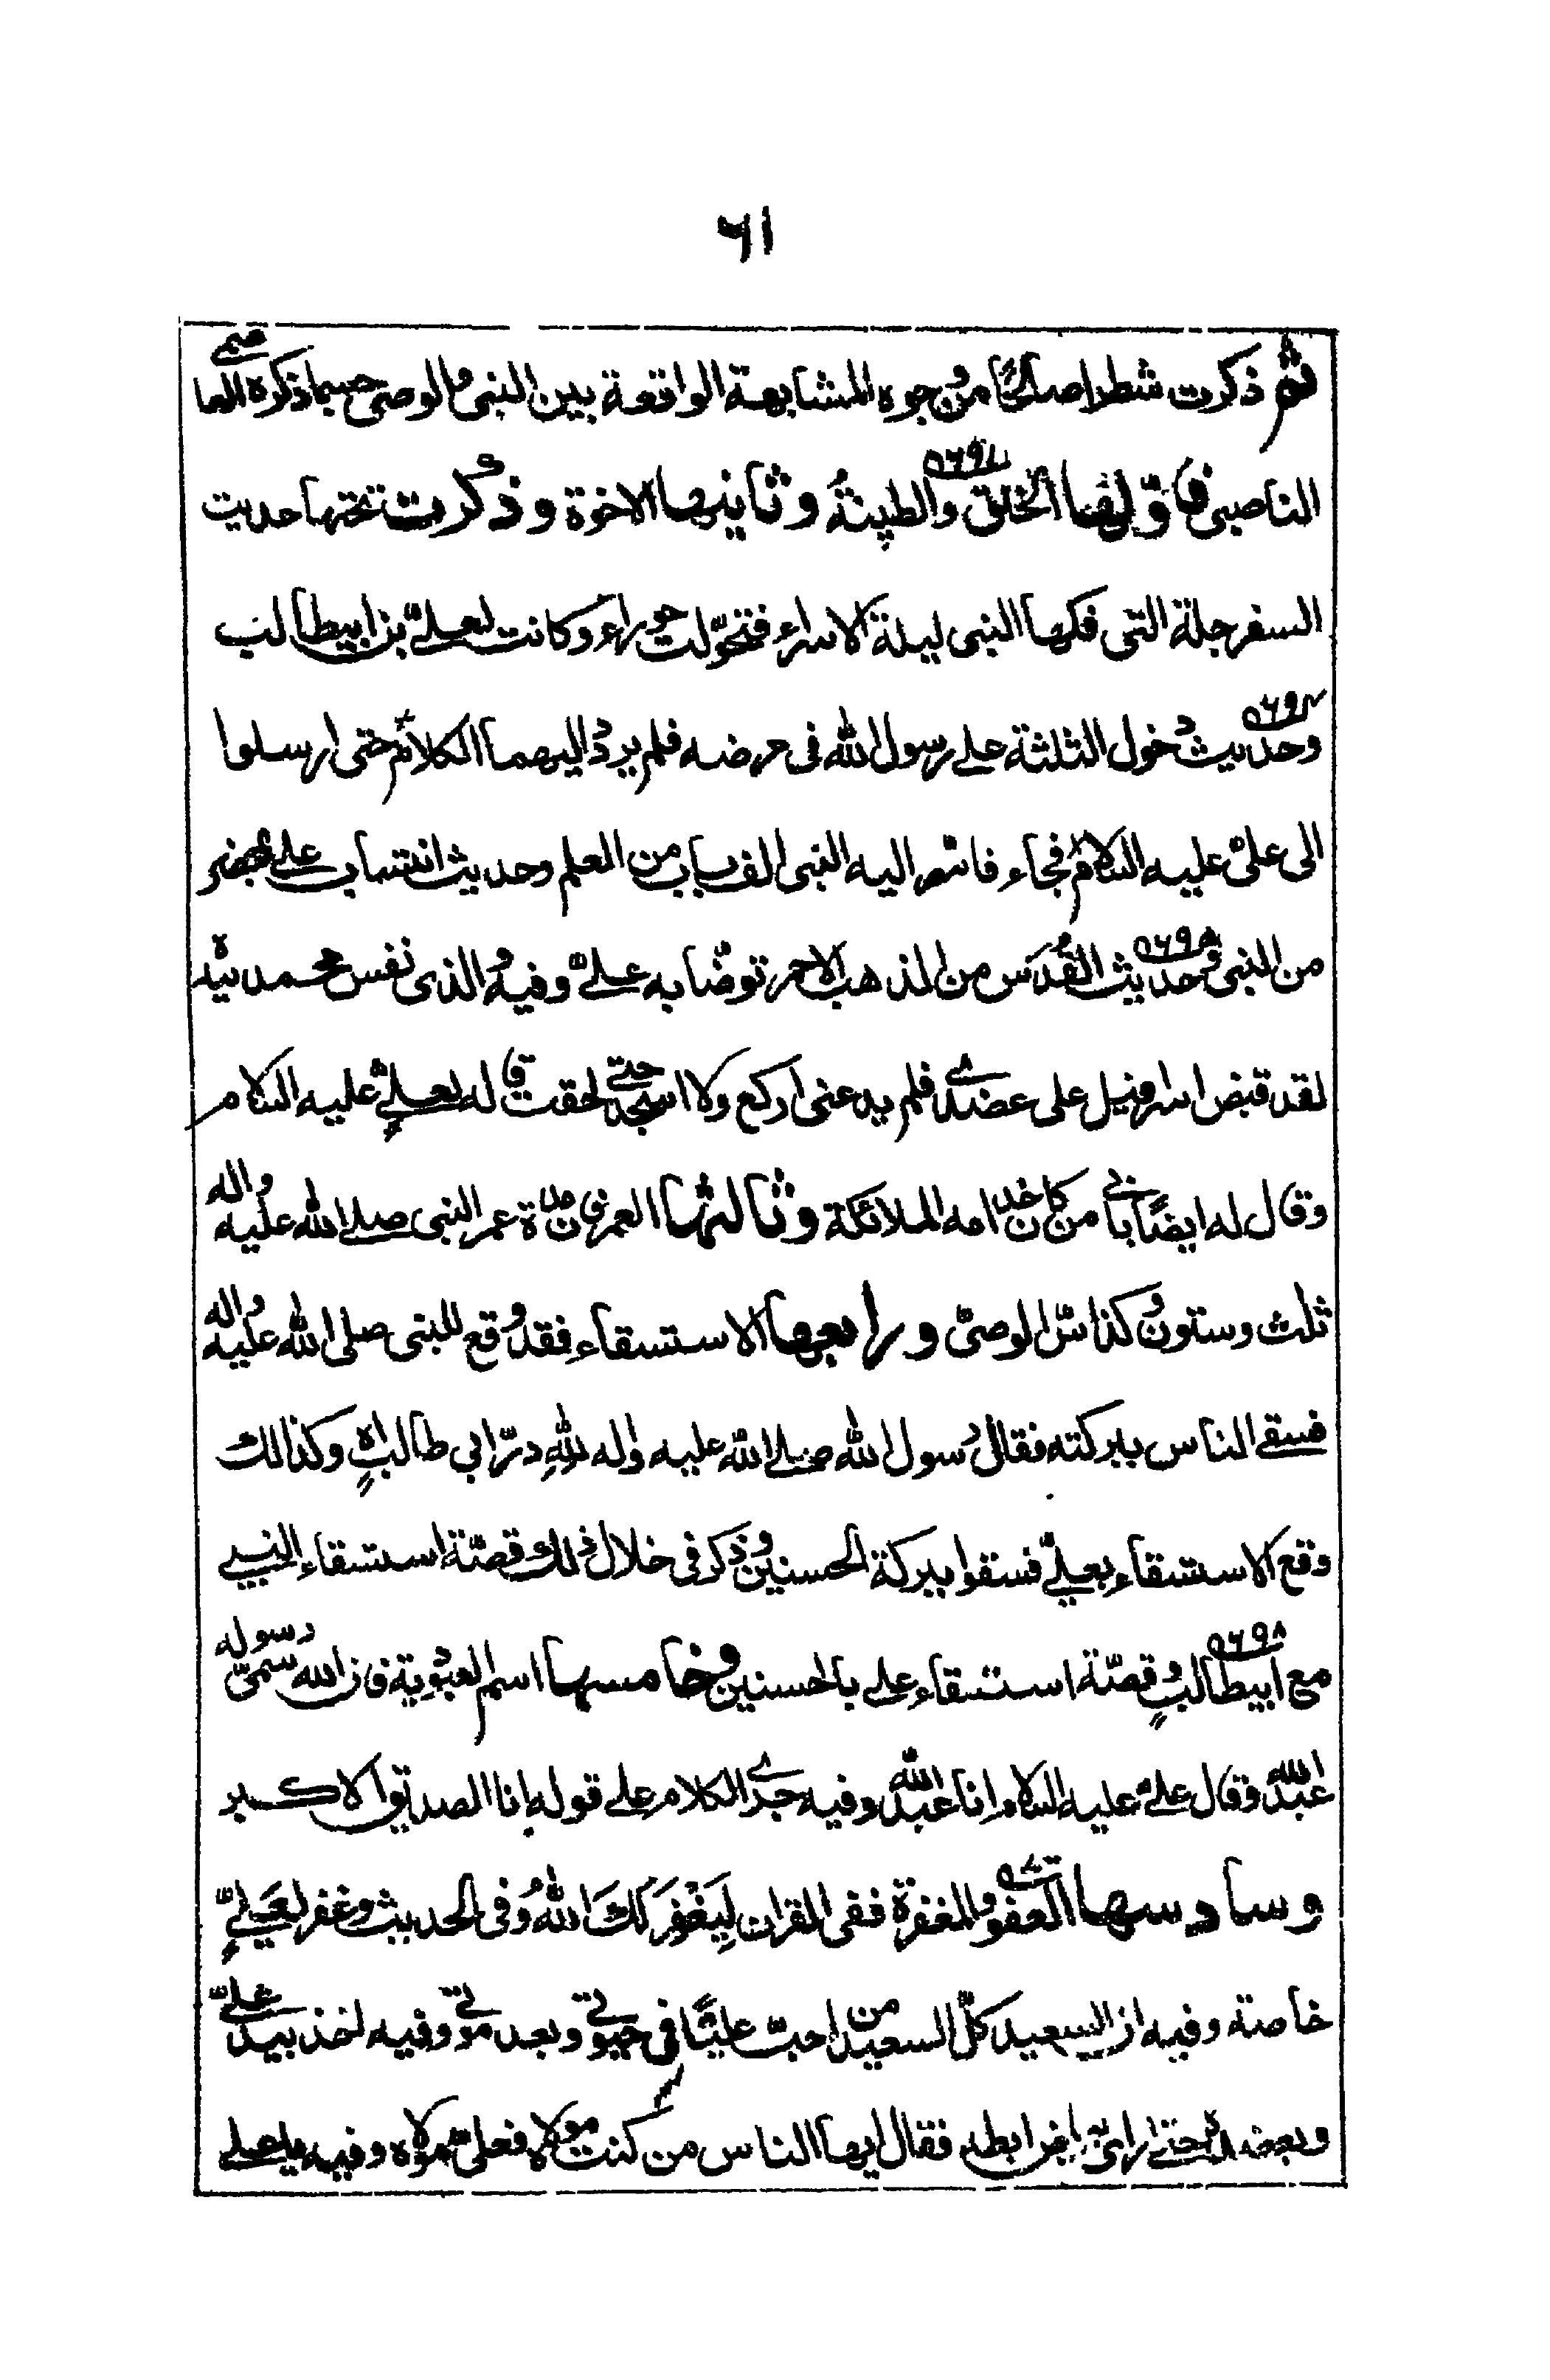 ٦١
ثم ذكرت شطرا صالحًا من وجوه المشابهة الواقعة بين النبي والوصي حسبما ذكره العاصمي
الناصبي فاوّلها الخلق والطينةُ وثانيها الاخوة وذكرت تحتها حديث
السفرجلة التي فكها النبي ليلة الاسراء فتحوّلت حوراء وكانت لعليّ بن ابيطالب
وحديث دخول الثلثة على رسول الله في مرضه فلم يرد اليهما الكلام حتى ارسلوا
الى عليّ عليه السلام فجاء فاسر اليه النبي الف باب من العلم وحديث انتساب علي بمحضر
من النبي وحديث القُدَس من الذهب الاحمر توضّا به عليّ وفيه والذي نفس محمد بيده
لقد قبض اسرافيل على عضدي فلم يدعني اركع ولا اسجد حتى لحقت قاله لعليّ عليه السلام
وقال له ايضًا بابي من كان خدامه الملائكة وثالثها العمر فان مدة عمر النبي صلى الله عليه واله
ثلث وستون وكذا سنّ الوصيّ ورابعها الاستسقاء فقد وقع للنبي صلى الله عليه واله
فسقى الناس ببركته فقال رسول الله صلى الله عليه واله للهِ درّ ابي طالبٍ اه وكذالك
وقع الاستسقاء بعليّ فسقوا ببركة الحسنين وذكر في خلال ذلك قصّة استسقاء النبي
مع ابيطالبٍ وقصّة استسقاء علي بالحسنين وخامسها اسم العبودية فان الله سمّى رسوله
عبد الله وقال عليّ عليه السلام انا عبد الله وفيه جرى الكلام على قوله انا الصديق الاكبر
وسادسها العفو والمغفرة ففي القران لِيَغْفِرَ لَكَ اللهُ وفي الحديث وغفر لعَليّ
خاصة وفيه ان السعيد كلّ السعيد من احبّ عليًّا في حيوتي وبعد موتي وفيه اخذ بيد عليّ
وبعضده حتى ارأي ابطه فقال ايها الناس من كنت مولاه فعليّ مولاه وفيه يا علي